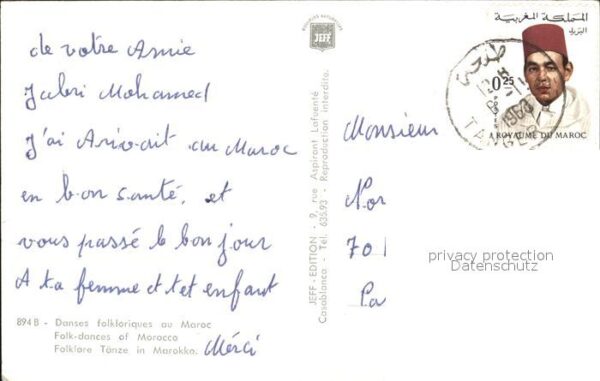 de votre Amie
Jabri Mohamed
J'ai Arivait au Maroc
en bon santé, et
vous passé le bonjour
A ta femme et tet enfant
Mérci
894 B - Danses folkloriques au Maroc
Folk-dances of Morocco
Folklore Tänze in Marokko.
JEFF
JEFF - EDITION - 9, rue Aspirant Lafuente
Casablanca - Tél. 635.93 - Reproduction interdite.
المملكة المغربية
البريد
0,25
ROYAUME DU MAROC
طنجة
TANGER
Monsieur
Nor
701
Pa
privacy protection
Datenschutz